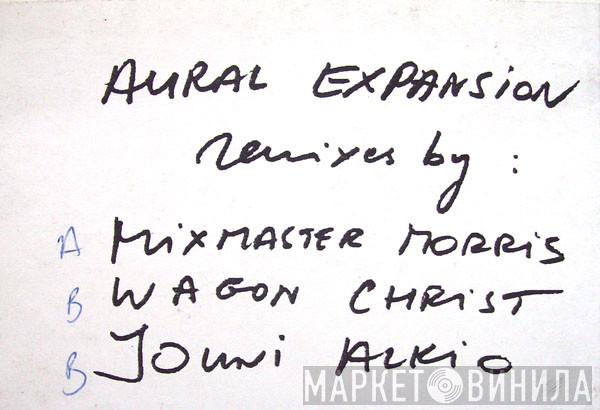 AURAL EXPANSION
remixes by :
A MIXMASTER MORRIS
B WAGON CHRIST
B JOUNI ALKIO
МАРКЕТ ВИНИЛА